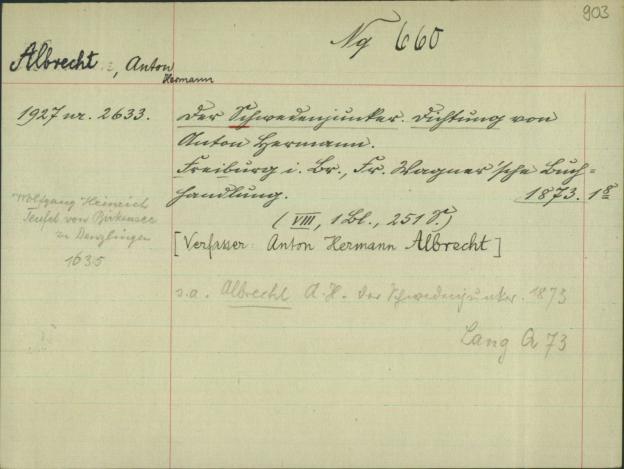 903
Nq 660
Albrecht, Anton
Hermann
1927 nr. 2633.
Der Schwedenjunker. Dichtung von
Anton Hermann.
Freiburg i. Br., Fr. Wagner'sche Buch=
handlung. 1873. 18°
(VIII, 1 Bl., 251 S.)
[Verfasser: Anton Hermann Albrecht]
Wolfgang Heinrich
Teufel von Birkensee
zu Denzlingen
1635
s.a. Albrecht A.H. Der Schwedenjunker. 1873
Lang A 73